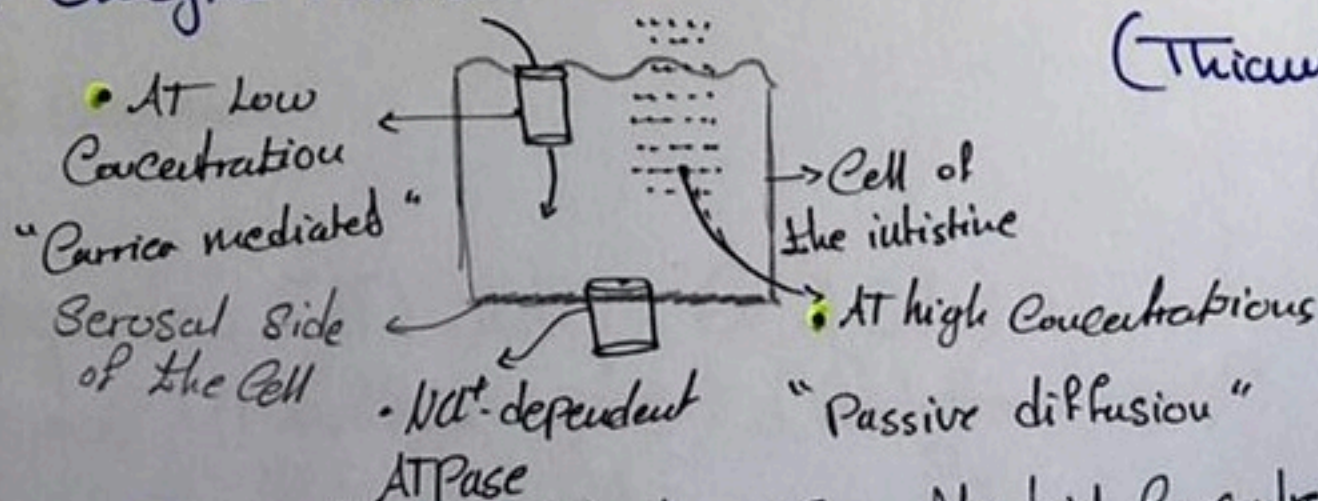 (Thiam
• AT Low
Concentration
"Carrier mediated"
Serosal side
of the Cell
→ Cell of
the intistine
• AT high Concentrations
"Passive diffusion"
• Na⁺-dependent
ATPase